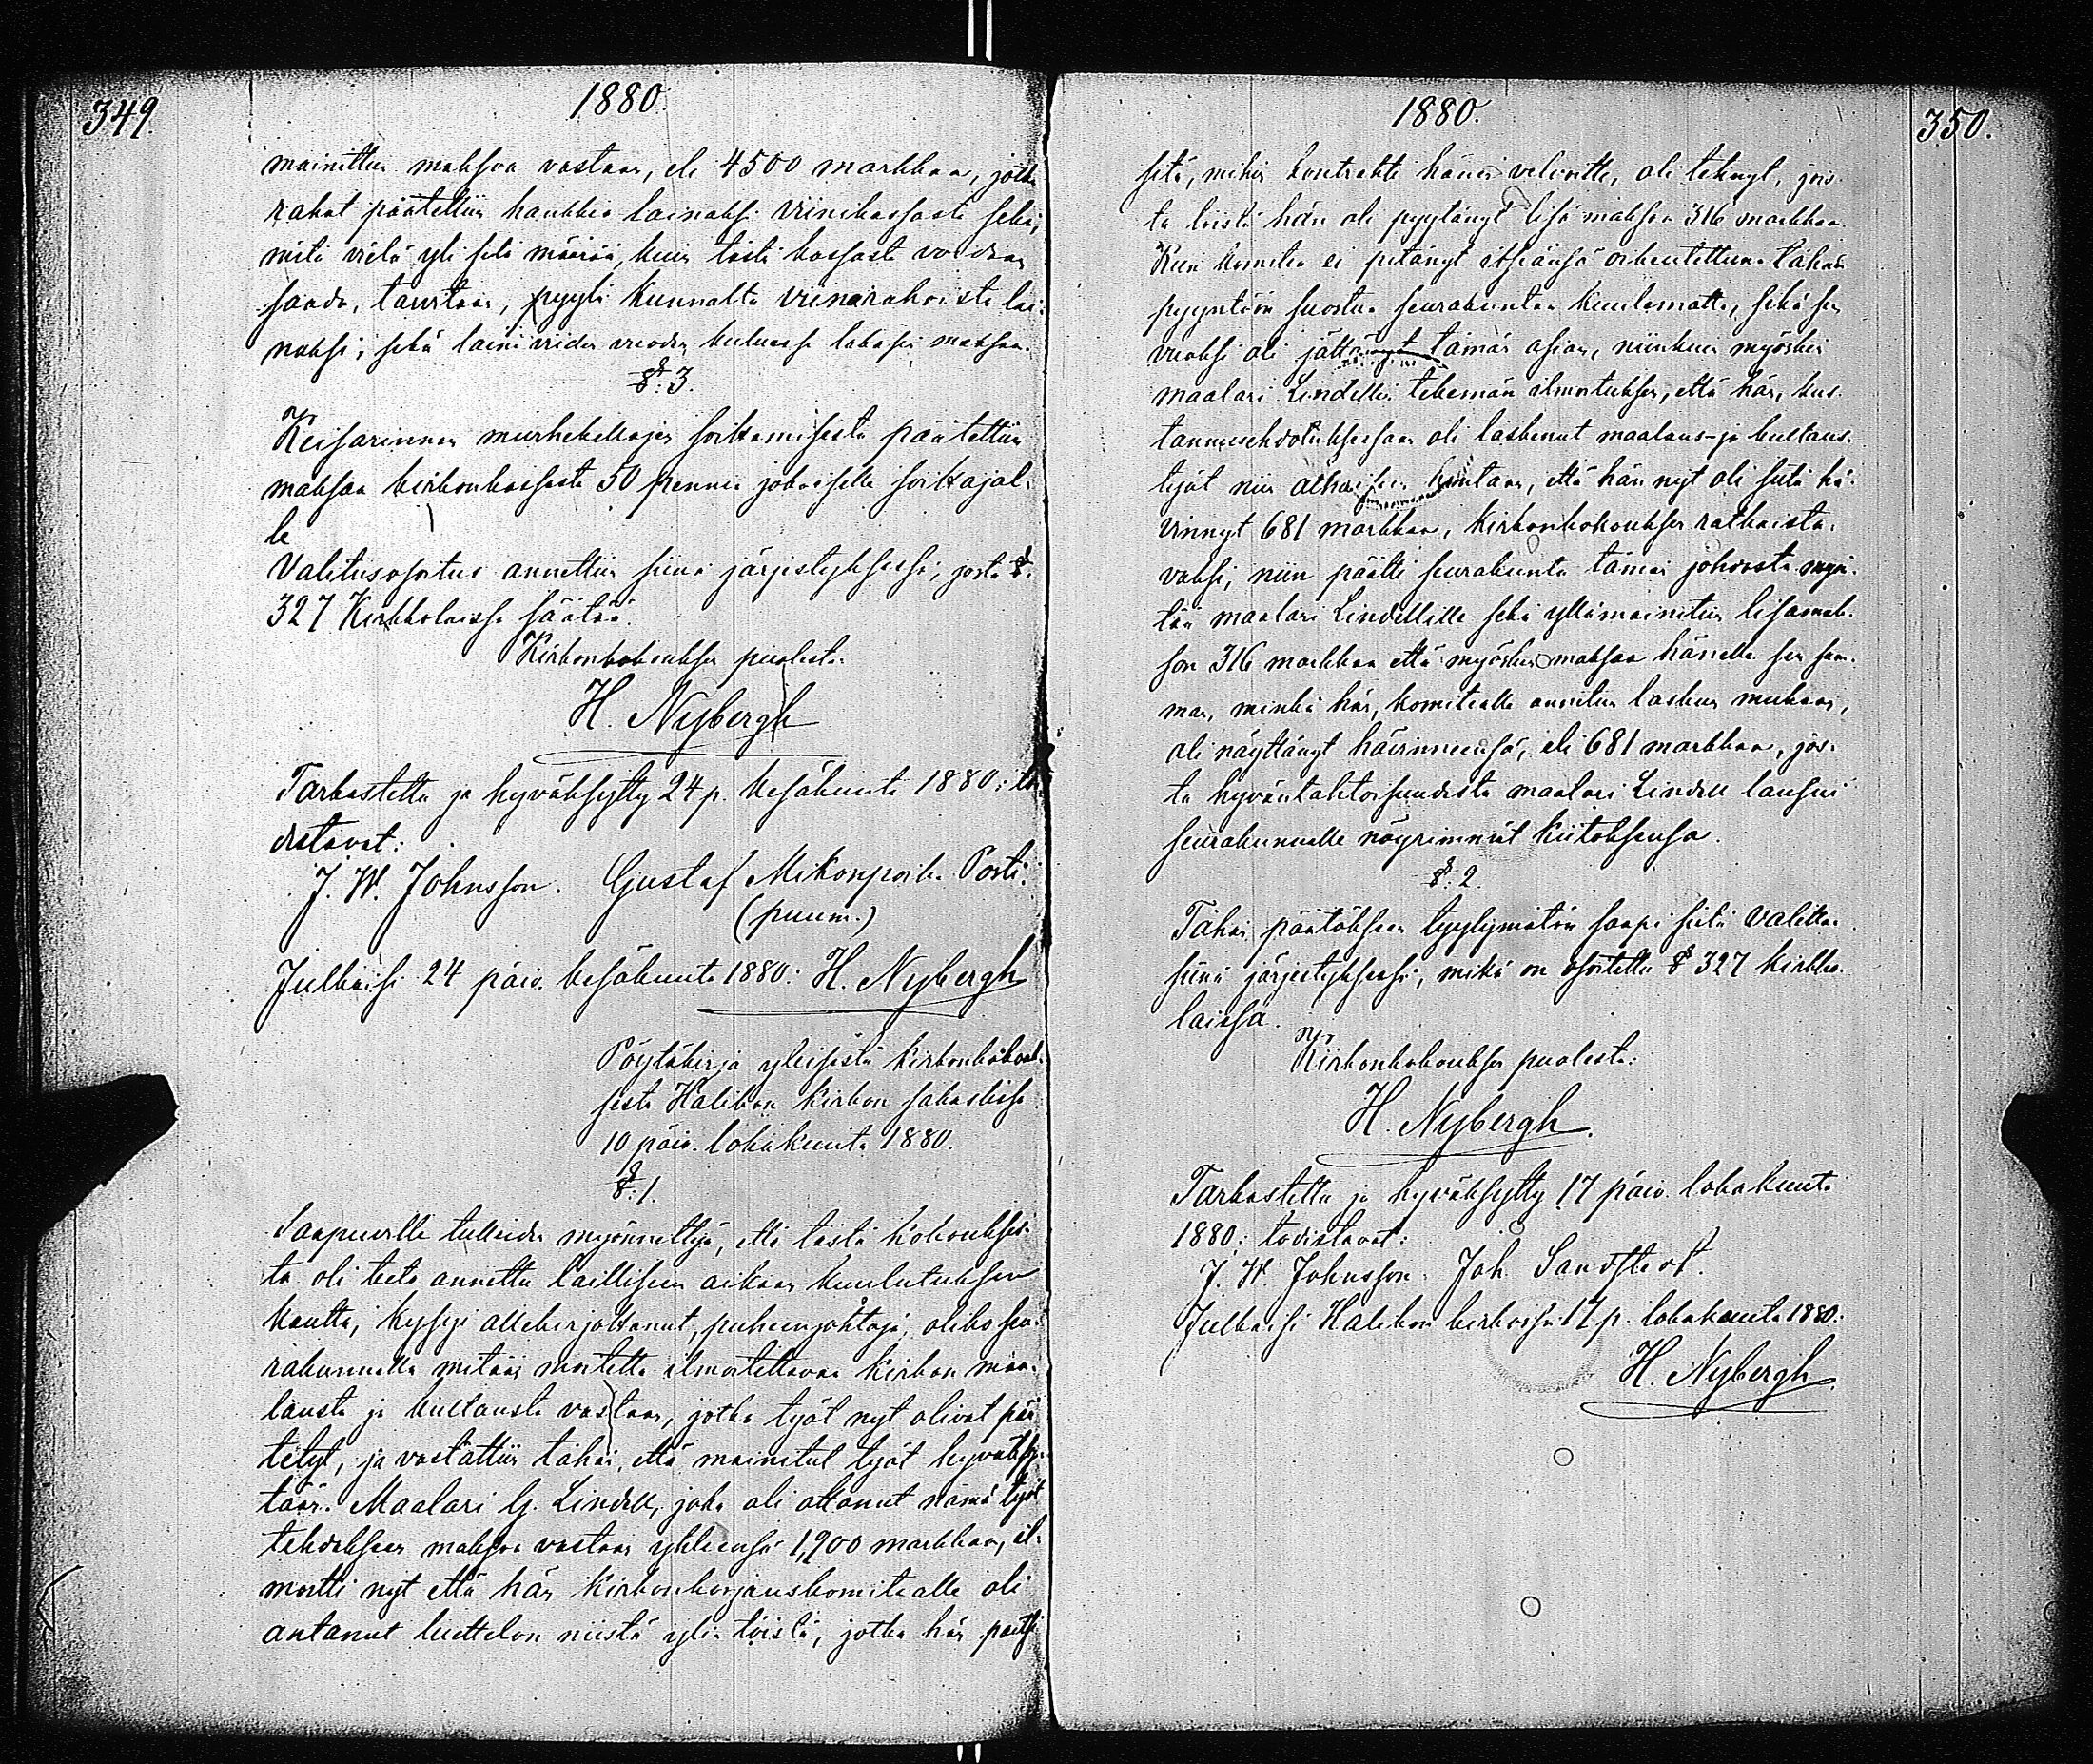 349.
1880.
mainittua maksoa vastaan, eli 4500 markkaa, jotka
rahat päätettiin hankkia lainaksi viinikassasta sekä,
mitä vielä yli sitä määrää, kuin tästä kassasta voidaan
saada, tarvitaan, pyytä kunnalta viinarahoista lai-
naksi; sekä laini viiden vuoden kuluessa takasin maksaa.
§. 3.
Keisarinnan murhekellojen soittamisesta päätettiin
maksaa kirkonkassasta 50 penniä jokaiselle soittajal-
le
Valitusosotus annettiin siinä järjestyksessä, josta §.
327 Kirkkolaissa säätää.
Kirkonkokouksen puolesta:
H. Nybergh
Tarkastettu ja hyväksytty 24 p. kesäkuuta 1880; to-
distavat:
J. W. Johnsson. Gustaf Mikonpoika Posti.
(puum.)
Julkaisi 24 päiv. kesäkuuta 1880: H. Nybergh
Pöytäkirja yleisestä kirkonkokouk-
sesta Halikon kirkon sakastissa
10 päiv. lokakuuta 1880.
§. 1.
Saapuville tulleiden myönnettyä, että tästä kokoukses-
ta oli tieto annettu lailliseen aikaan kuulutuksen
kautta, kysyi allekirjoittanut, puheenjohtaja, oliko seu-
rakunnalla mitään muistettä ilmoitettavaa kirkon maa-
lausta ja kultausta vastaan, jotka työt nyt olivat pää-
tetyt, ja vastattiin tähän, että mainitut työt hyväksy-
tään. Maalari G. Lindell, joka oli ottanut nämä työt
tehdäkseen maksoa vastaan yhteensä 1,900 markkaa, il-
moitti nyt että hän kirkonkorjauskomitealle oli
antanut luettelon niistä yli-töistä, jotka hän paitsi
1880.
350.
sitä, mihin kontrahti hänen velvoitti, oli tehnyt, jois-
ta töistä hän oli pyytänyt lisä maksoa 316 markkaa.
Kun komitea ei pitänyt itseänsä oikeutettuna tähän
pyyntöön suostua seurakuntaa kuulematta, sekä sen
vuoksi oli jättänyt tämän asian, niinkuin myöskin
maalari Lindellin tekemän ilmoituksen, että hän, kus-
tannusehdotuksessaan oli laskenut maalaus- ja kultaus-
työt niin alhaiseen hintaan, että hän nyt oli siitä hä-
vinnyt 681 markkaa, kirkonkokouksen ratkaista-
vaksi, niin päätti seurakunta tämän johdosta myön-
tää maalari Lindellille sekä yllämainitun lisämak-
son 316 markkaa että myöskin maksaa hänelle sen sum-
man, minkä hän, komitealle annetun laskun mukaan,
oli näyttänyt hävinneensä, eli 681 markkaa, jos-
ta hyväntahtoisuudesta maalari Lindell lausui
seurakunnalle nöyrimmät kiitoksensa.
§. 2.
Tähän päätökseen tyytymätön saapi siitä valittaa
siinä järjestyksessä, mikä on osotettu § 327 kirkko-
laissa.
Kirkonkokouksen puolesta:
H. Nybergh.
Tarkastettu ja hyväksytty 17 päiv. lokakuuta
1880; todistavat:
J. W. Johnsson. Joh. Sandstedt.
Julkaisi Halikon kirkossa 17 p. lokakuuta 1880:
H. Nybergh.